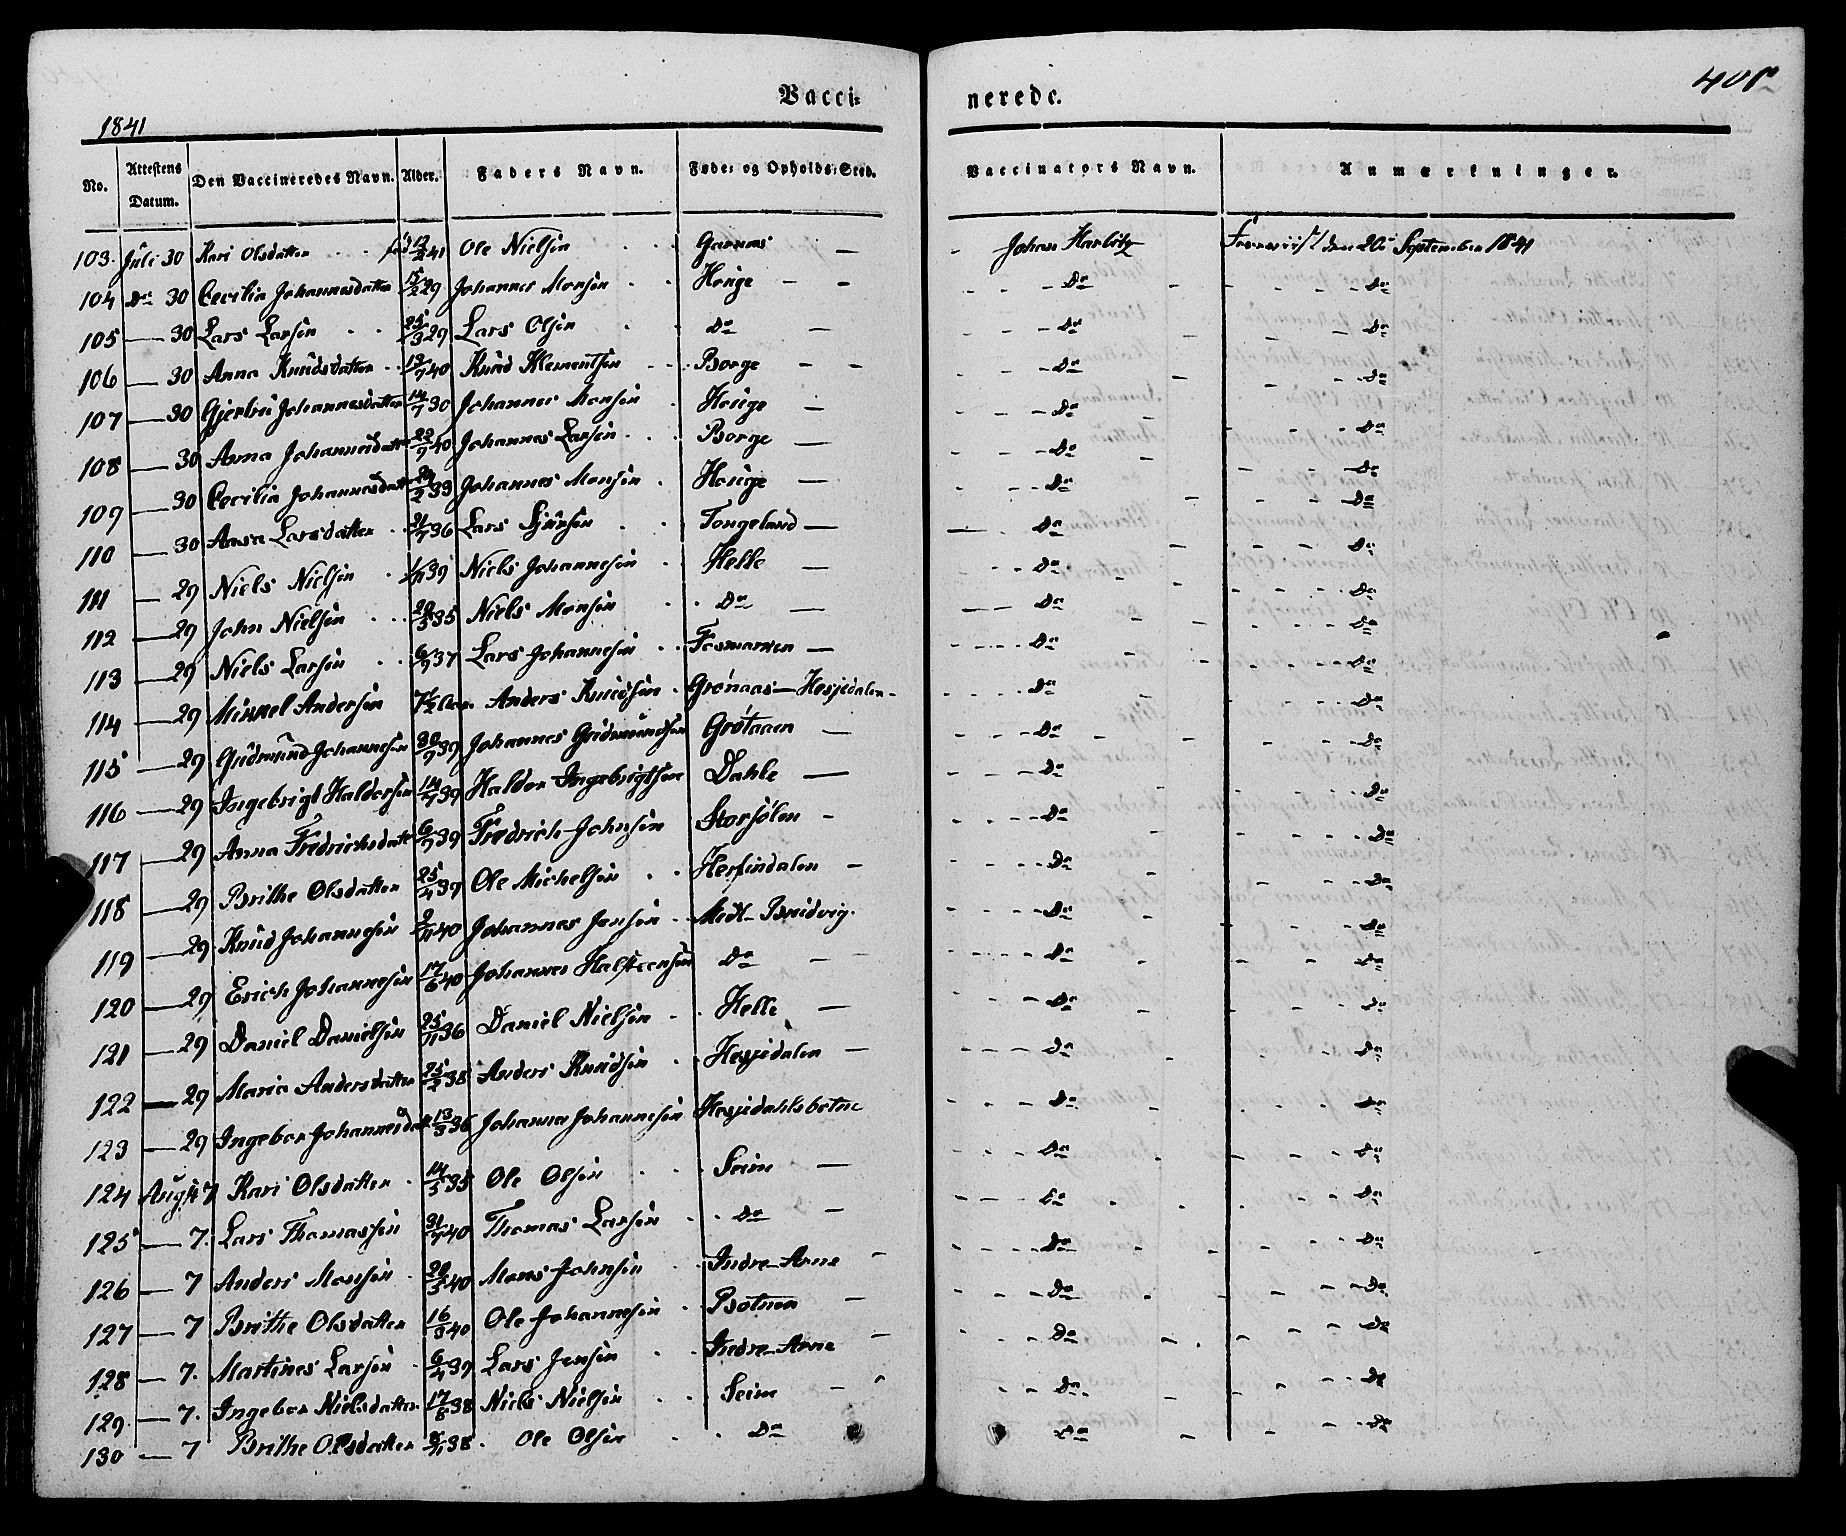 Vacci= nerede.
1841
No. Attestens Datum. Den Vaccineredes Navn. Alder. Faders Navn. Føde= og Opholds=Sted. Vaccinators Navn. Anmærkninger.
103. Juli 30 Kari Olsdatter 12/3 41 Ole Nielsen Garnæs Johan Foreviist den 20de September 1841
104 Do 30 Cecilia Johannesdatter 15/2 29 Johannes Monsen Houge Do Do
105 — 30 Lars Larsen 25/3 29 Lars Olsen Do Do Do
106 — 30 Anna Knudsdatter 13/7 40 Knud Klementsen Borge Do Do
107 — 30 Gjertru Johannesdatter 14/7 30 Johannes Monsen Houge Do Do
108 — 30 Anna Johannesdatter 22/9 40 Johannes Larsen Borge Do Do
109 — 30 Cecilia Johannesdatter 20/2 33 Johannes Monsen Houge Do Do
110 — 30 Anna Larsdatter 21/7 36 Lars Sjursen Tongeland Do Do
111 — 29 Niels Nielsen 1/11 39 Niels Johannesen Helle Do Do
112 — 29 John Nielsen 20/3 35 Niels Monsen Do Do Do
113 — 29 Niels Larsen 6/9 37 Lars Johannesen Fosmarken Do Do
114 — 29 Mikkel Andersen 7 1/2 Aar Anders Knudsen Grønaas — Hesjedalen Do Do
115 — 29 Gudmund Johannesen 30/9 39 Johannes Gudmundsen Grøtaaen Do Do
116 — 29 Ingebrigt Haldorsen 14/7 39 Haldor Ingebrigtsen Dahle Do Do
117 — 29 Anna Fredrichsdatt 6/9 39 Fredrich Johnsen Storsølen Do Do
118 — 29 Brithe Olsdatter 25/4 39 Ole Michelsen Herfindalen Do Do
119 — 29 Knud Johannesen 2/11 40 Johannes Jensen Midt-Bredvig. Do Do
120 — 29 Erich Johannesen 17/6 40 Johannes Halsteensen Do Do Do
121 — 29 Daniel Danielsen 25/11 36 Daniel Nielsen Helle Do Do
122 — 29 Maria Andersdatter 25/2 38 Anders Knudsen Hesjedalen Do Do
123 — 29 Ingebor Johannesdat 13/3 36 Johannes Johannesen Hesjedahlsbotne Do Do
124 August 7 Kari Olsdatter 14/5 35 Ole Olsen Seim Do Do
125 — 7. Lars Thomassen 31/7 40 Thomas Larsen Do Do Do
126 — 7 Anders Monsen 20/3 40 Mons Johnsen Indre-Arne Do Do
127 — 7 Brithe Olsdatter 16/3 40 Ole Johannesen Botnen Do Do
128 — 7. Martines Larsen 6/4 39 Lars Jensen Indre-Arne Do Do
129 — 7. Ingebor Nielsdatter 17/8 38 Niels Nielsen Seim Do Do
130 — 7 Brithe Olsdatter 38 Ole Olsen Do Do Do